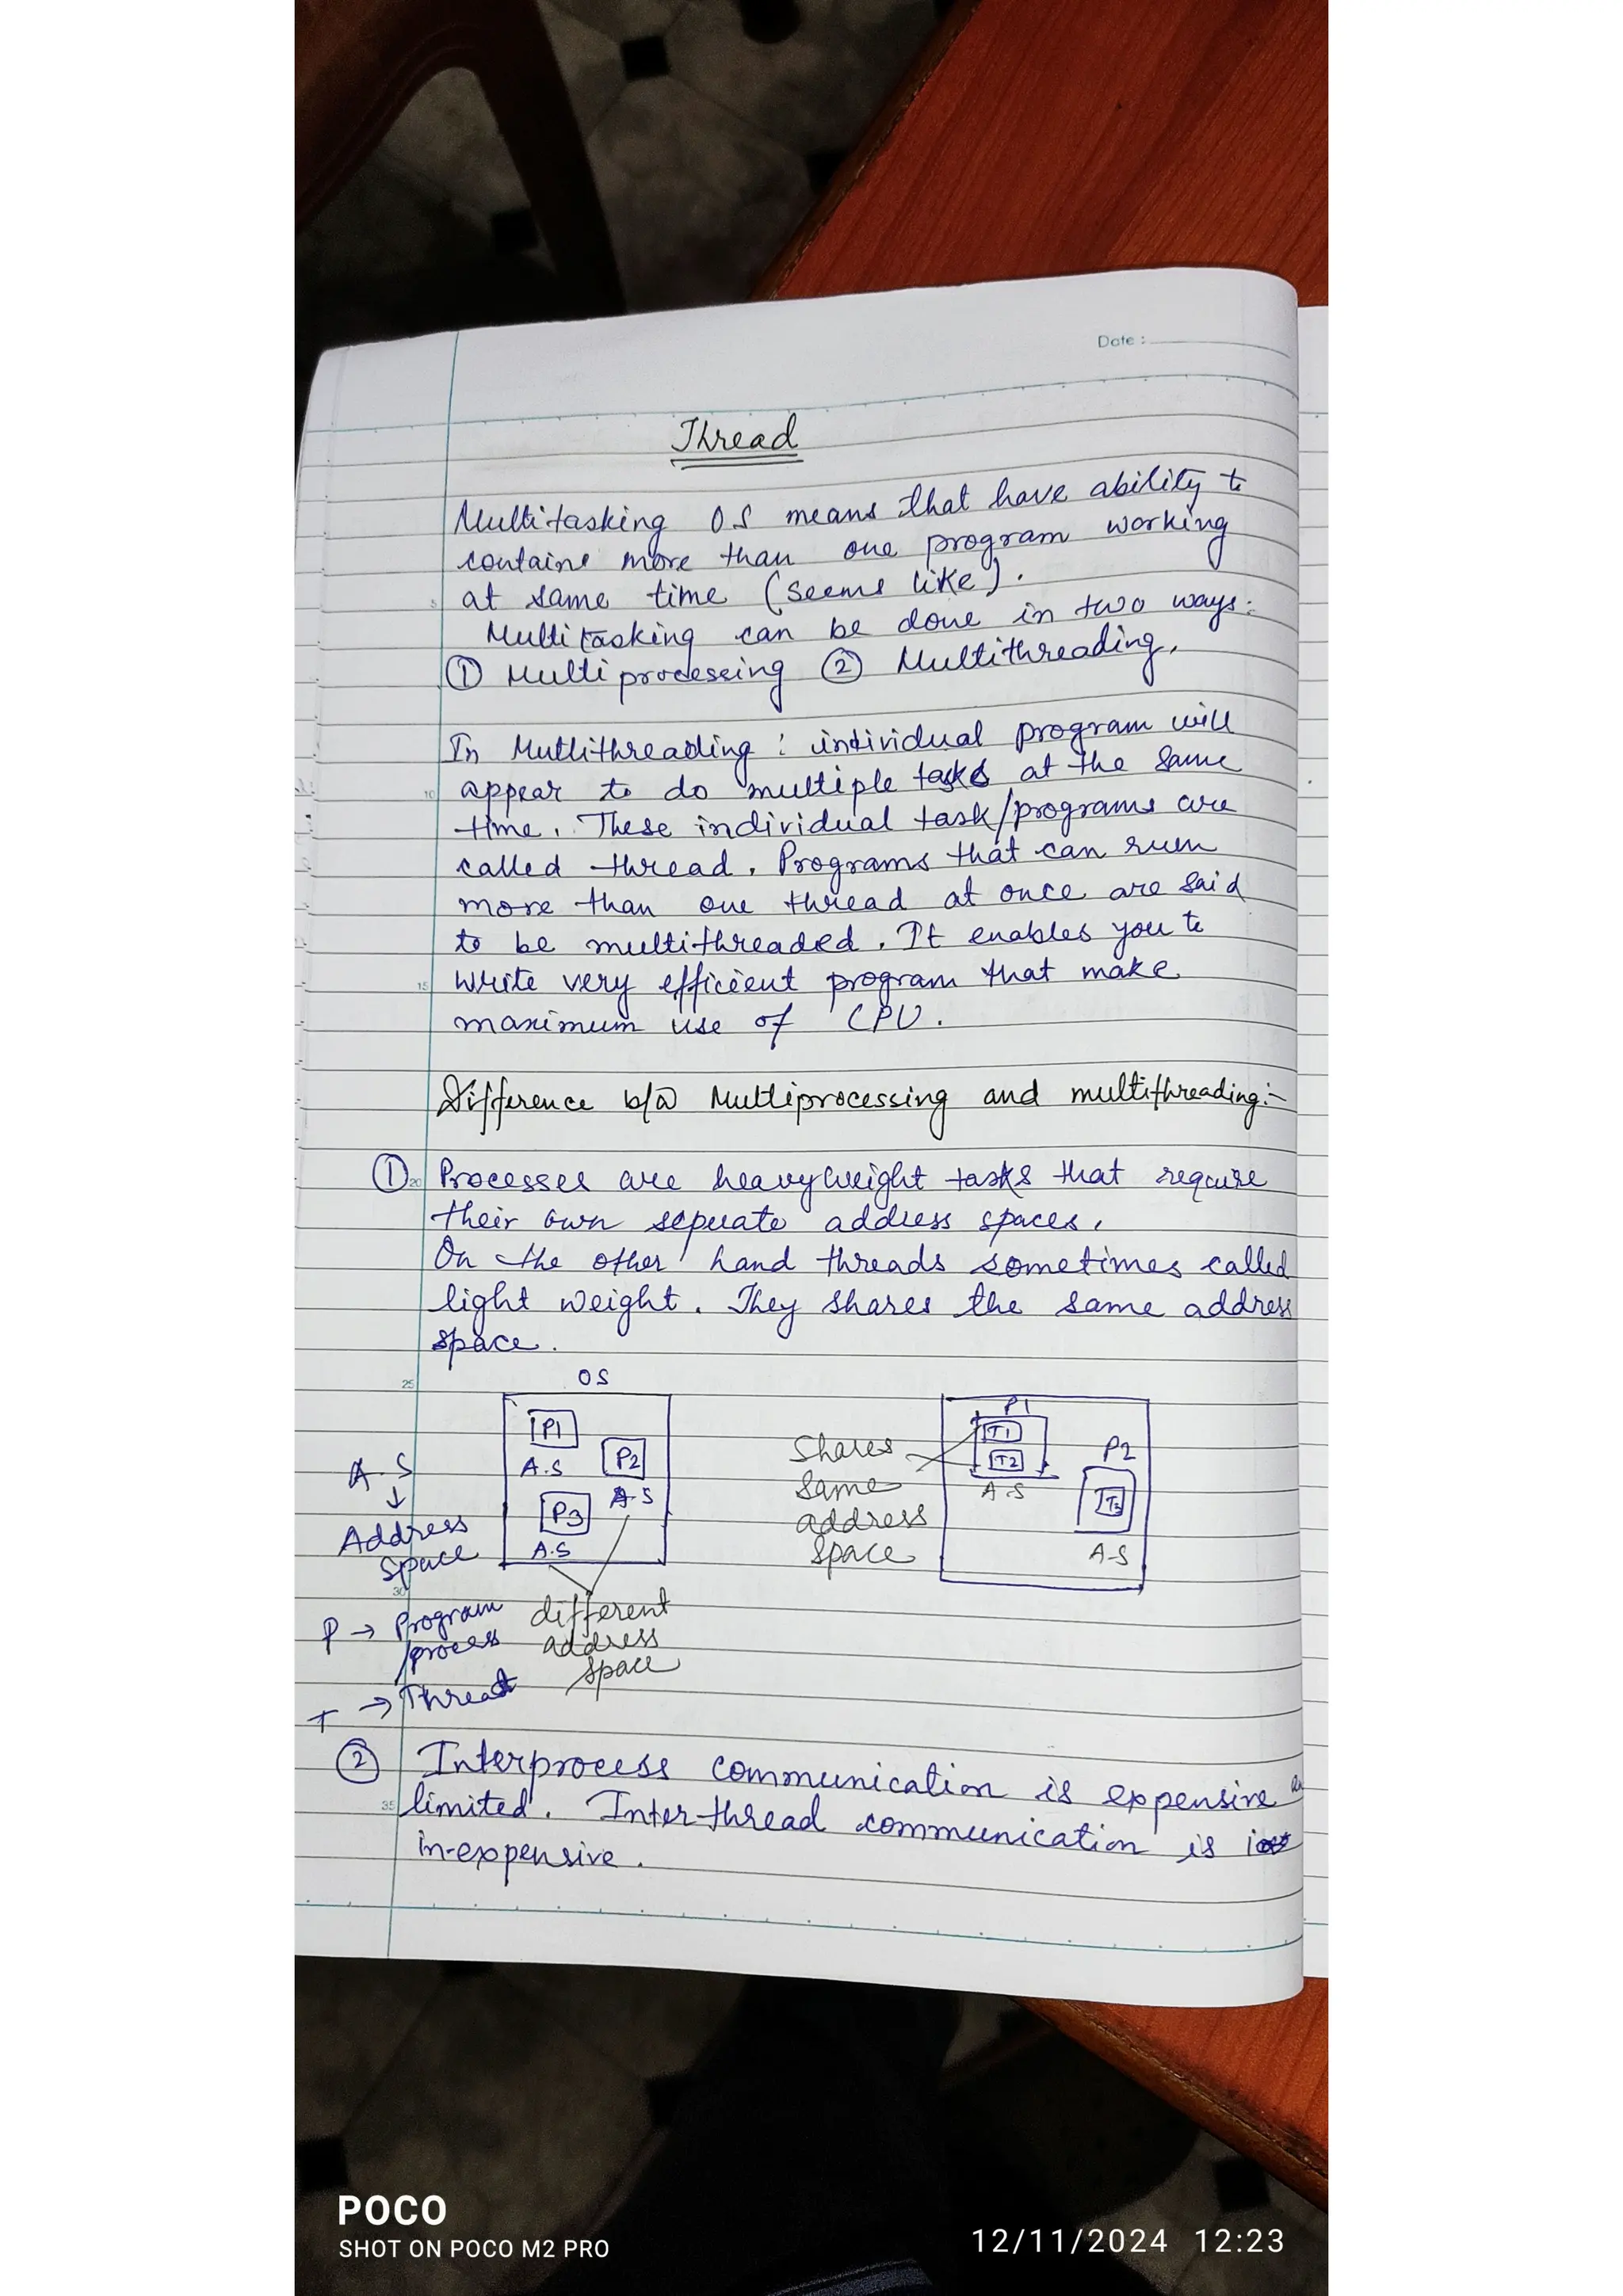 Date :
Thread
Multitasking OS means that have ability to
contains more than one program working
at same time (seems like).
Multitasking can be done in two ways:
① Multiprocessing ② Multithreading.
In Mutlithreading : individual program will
appear to do multiple tasks at the same
time. These individual task/programs are
called thread. Programs that can run
more than one thread at once are said
to be multithreaded. It enables you to
write very efficient program that make
maximum use of CPU.
Difference b/w Multiprocessing and multithreading:-
① Processes are heavyweight tasks that require
their own sepuate address spaces.
On the other hand threads sometimes called
light weight. They shares the same address
space.
OS
P1
A.S
P2
A.S
P3
A.S
different
address
space
A.S
↓
Address
space
P → Program
/process
T → Thread
Shares
same
address
space
P1
T1
T2
A.S
P2
T3
A-S
② Interprocess communication is expensive
limited. Inter-thread communication is
in-expensive.
5
10
15
20
25
30
35
POCO
SHOT ON POCO M2 PRO
12/11/2024 12:23